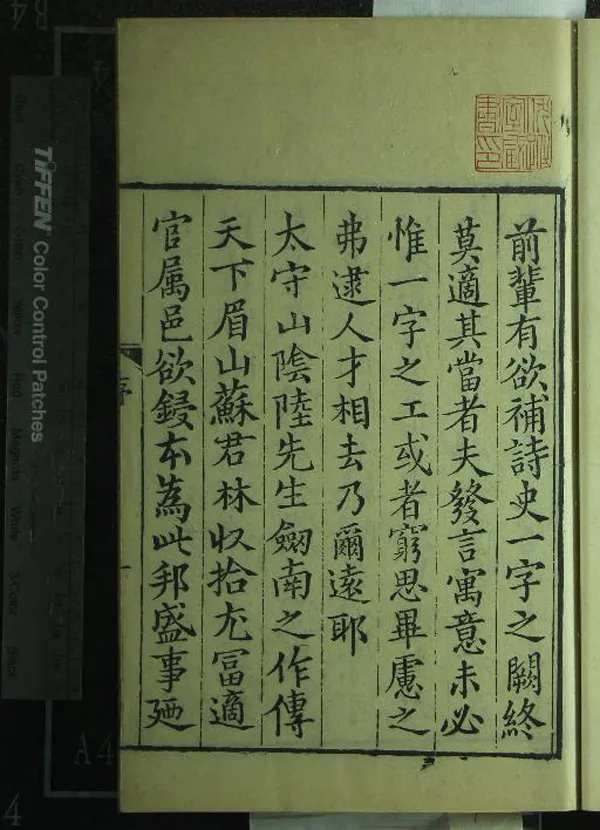 前輩有欲補詩史一字之闕終
莫適其當者夫發言寓意未必
惟一字之工或者窮思畢慮之
弗逮人才相去乃爾遠耶
太守山陰陸先生劒南之作傳
天下眉山蘇君林収拾尤冨適
官属邑欲鋟本為此邦盛事廼
序
一
TIFFEN Color Control Patches
Red Magenta White 3/Color Black
B4
A4
4